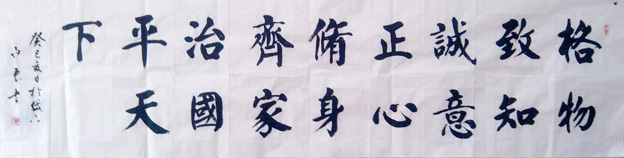 格物
致知
誠意
正心
脩身
齊家
治國
平天
下
癸巳夏日於
書